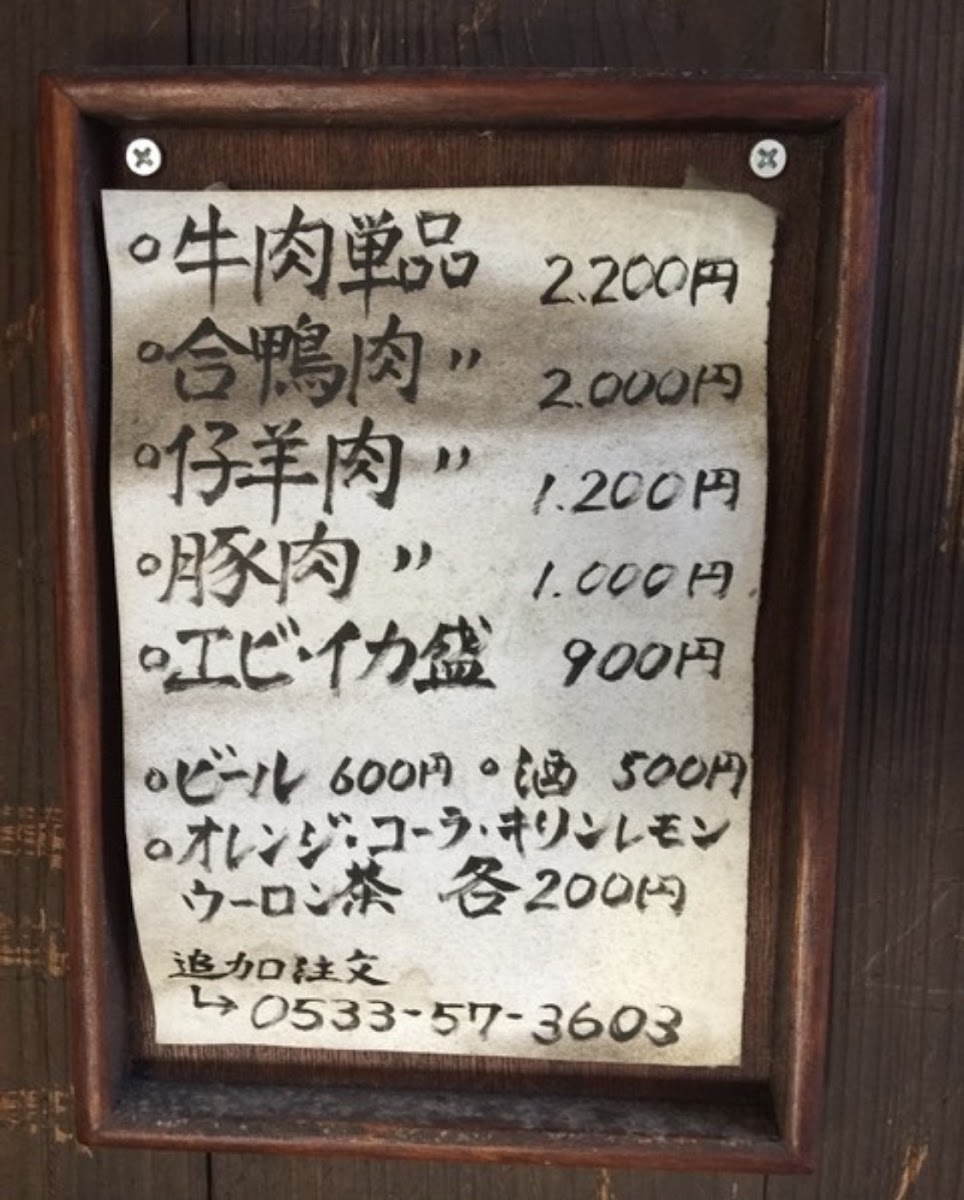 ○牛肉単品 2.200円
○合鴨肉〃 2.000円
○仔羊肉〃 1.200円
○豚肉〃 1.000円
○エビ・イカ盛 900円
○ビール 600円 ○酒 500円
○オレンジ・コーラ・キリンレモン
ウーロン茶 各200円
追加注文
↳0533-57-3603